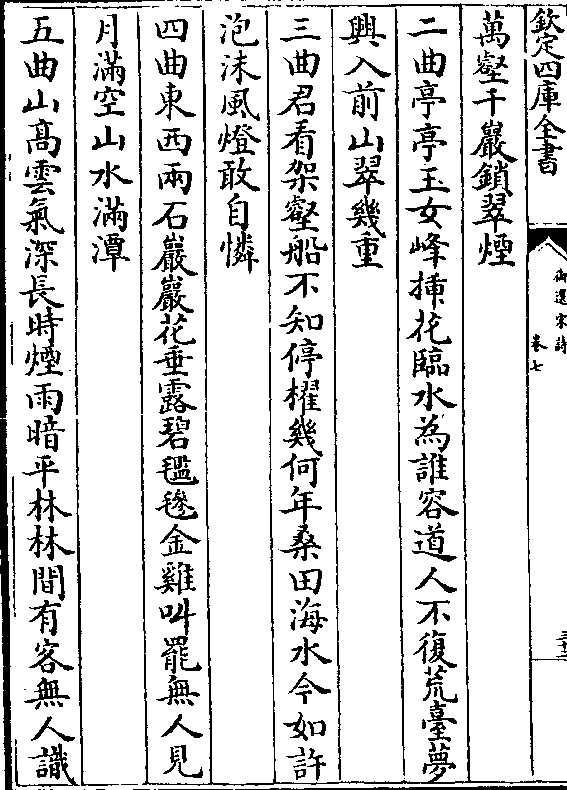 欽定四庫全書
御選宋詩
卷七
萬壑千巖鎖翠煙
二曲亭亭玉女峰揷花臨水為誰容道人不復荒臺夢
興入前山翠幾重
三曲君看架壑船不知停櫂幾何年桑田海水今如許
泡沫風燈敢自憐
四曲東西兩石巖巖花垂露碧㲯毿金雞叫罷無人見
月滿空山水滿潭
五曲山髙雲氣深長時煙雨暗平林林間有客無人識